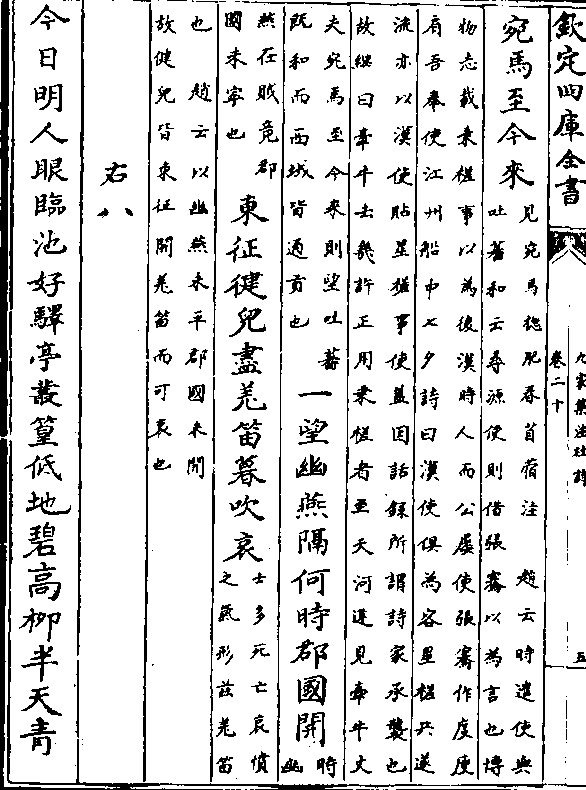 欽定四庫全書
九家集注杜詩
卷二十
五
宛馬至今來
見宛馬總肥春苜蓿注 趙云時遣使與
吐蕃和云尋源使則借張騫以為言也博
物志載乘槎事以為後漢時人而公屢使張騫作度庾
肩吾奉使江州船中七夕詩曰漢使俱為客星槎共逐
流亦以漢使貼星槎事使蓋因話錄所謂詩家承襲也
故繼曰牽牛去幾許正用乘槎者至天河邊見牽牛丈
夫宛馬至今來則望吐蕃
既和而西域皆通貢也
一望幽燕隔何時郡國開
時
幽
燕在賊竟郡
國未寧也
東征健兒盡羌笛暮吹哀
士多死亡哀憤
之氣形茲羌笛
也 趙云以幽燕未平郡國未開
故健兒皆東征聞羌笛而可哀也
右八
今日明人眼臨池好驛亭叢篁低地碧高柳半天青